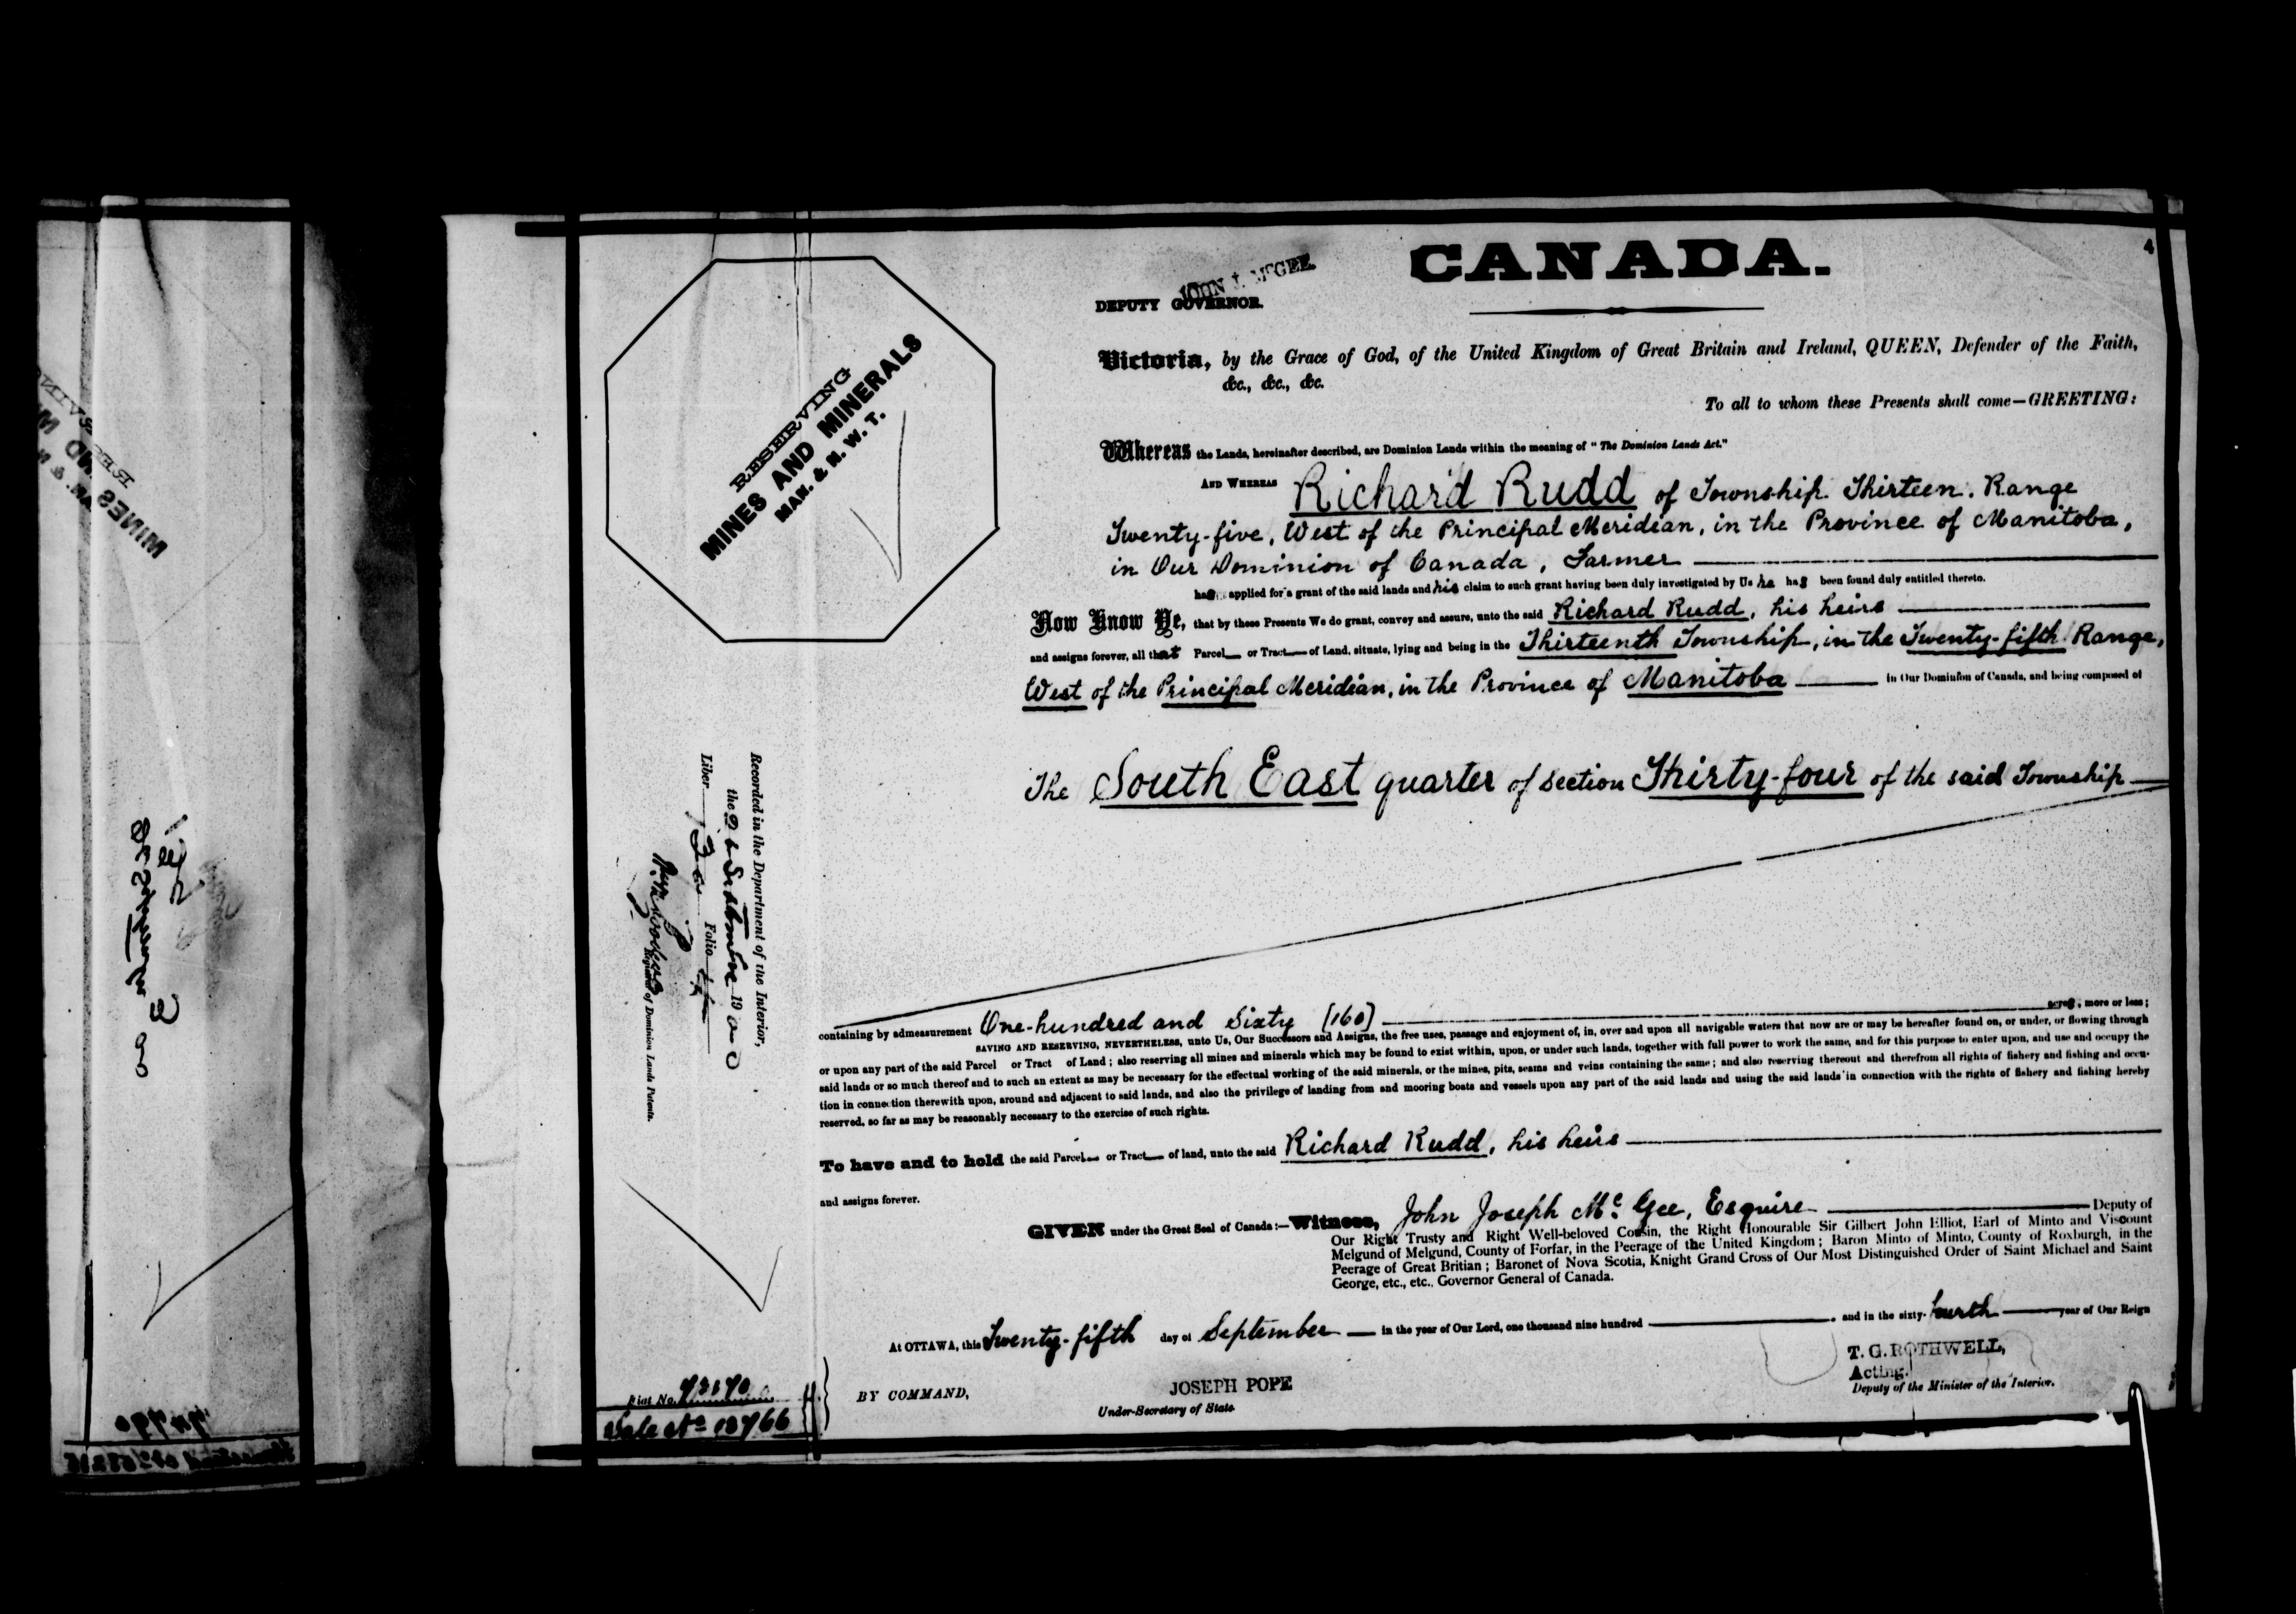 CANADA.
4
JOHN J. McGEE.
DEPUTY GOVERNOR.
Victoria, by the Grace of God, of the United Kingdom of Great Britain and Ireland, QUEEN, Defender of the Faith,
&c., &c., &c.
To all to whom these Presents shall come—GREETING:
Whereas the Lands, hereinafter described, are Dominion Lands within the meaning of "The Dominion Lands Act."
AND WHEREAS Richard Rudd of Township Thirteen. Range
Twenty-five, West of the Principal Meridian, in the Province of Manitoba,
in Our Dominion of Canada, Farmer
has applied for a grant of the said lands and his claim to such grant having been duly investigated by Us he has been found duly entitled thereto.
Now Know Ye, that by these Presents We do grant, convey and assure, unto the said Richard Rudd, his heirs
and assigns forever, all that Parcel or Tract of Land, situate, lying and being in the Thirteenth Township, in the Twenty-fifth Range,
West of the Principal Meridian, in the Province of Manitoba in Our Dominion of Canada, and being composed of
The South East quarter of section Thirty-four of the said Township
containing by admeasurement One-hundred and Sixty [160] acres, more or less;
SAVING AND RESERVING, NEVERTHELESS, unto Us, Our Successors and Assigns, the free uses, passage and enjoyment of, in, over and upon all navigable waters that now are or may be hereafter found on, or under, or flowing through
or upon any part of the said Parcel or Tract of Land; also reserving all mines and minerals which may be found to exist within, upon, or under such lands, together with full power to work the same, and for this purpose to enter upon, and use and occupy the
said lands or so much thereof and to such an extent as may be necessary for the effectual working of the said minerals, or the mines, pits, seams and veins containing the same; and also reserving thereout and therefrom all rights of fishery and fishing and occu-
tion in connection therewith upon, around and adjacent to said lands, and also the privilege of landing from and mooring boats and vessels upon any part of the said lands and using the said lands in connection with the rights of fishery and fishing hereby
reserved, so far as may be reasonably necessary to the exercise of such rights.
To have and to hold the said Parcel or Tract of land, unto the said Richard Rudd, his heirs
and assigns forever.
GIVEN under the Great Seal of Canada:—Witness, John Joseph McGee, Esquire Deputy of
Our Right Trusty and Right Well-beloved Cousin, the Right Honourable Sir Gilbert John Elliot, Earl of Minto and Viscount
Melgund of Melgund, County of Forfar, in the Peerage of the United Kingdom; Baron Minto of Minto, County of Roxburgh, in the
Peerage of Great Britian; Baronet of Nova Scotia, Knight Grand Cross of Our Most Distinguished Order of Saint Michael and Saint
George, etc., etc., Governor General of Canada.
At OTTAWA, this Twenty-fifth day of September in the year of Our Lord, one thousand nine hundred , and in the sixty-fourth year of Our Reign
T. G. ROTHWELL,
Acting
Deputy of the Minister of the Interior.
BY COMMAND,
JOSEPH POPE
Under-Secretary of State
RESERVING
MINES AND MINERALS
MAN. & N. W. T.
Recorded in the Department of the Interior,
the 26 September 1900
Liber 130 Folio
Registrar of Dominion Lands Patents.
Fiat No.
Sale No 13766